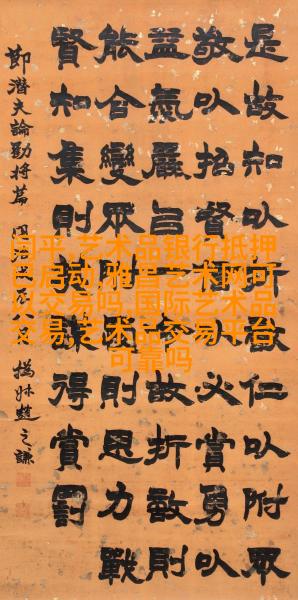 是故知㠯折敵仁㠯附眾
敬㠯招督㠯必賞勇㠯
益氣嚴㠯一故折敵則
能合變眾附則恩力戰
賢知集則英謀得賞罰
節潛夫論勸將篇 同治
撝叔趙之謙
闫平 艺术品银行抵押
已启动,雅昌艺术网可
以交易吗,国际艺术品
交易艺术品交易平台
可靠吗